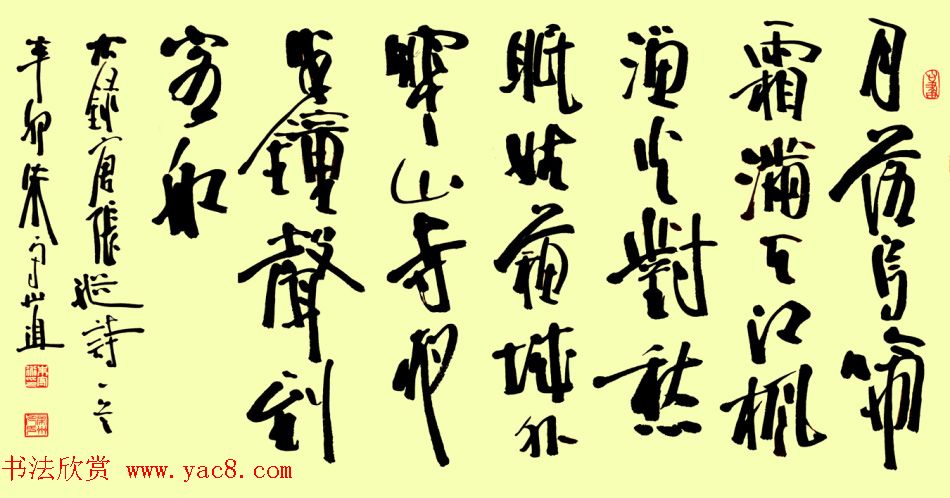 月落烏啼
霜滿天江楓
漁火對愁
眠姑蘇城外
寒山寺夜
半鐘聲到
客船
右錄唐張繼詩一首
辛卯朱守道
书法欣赏 www.yac8.com